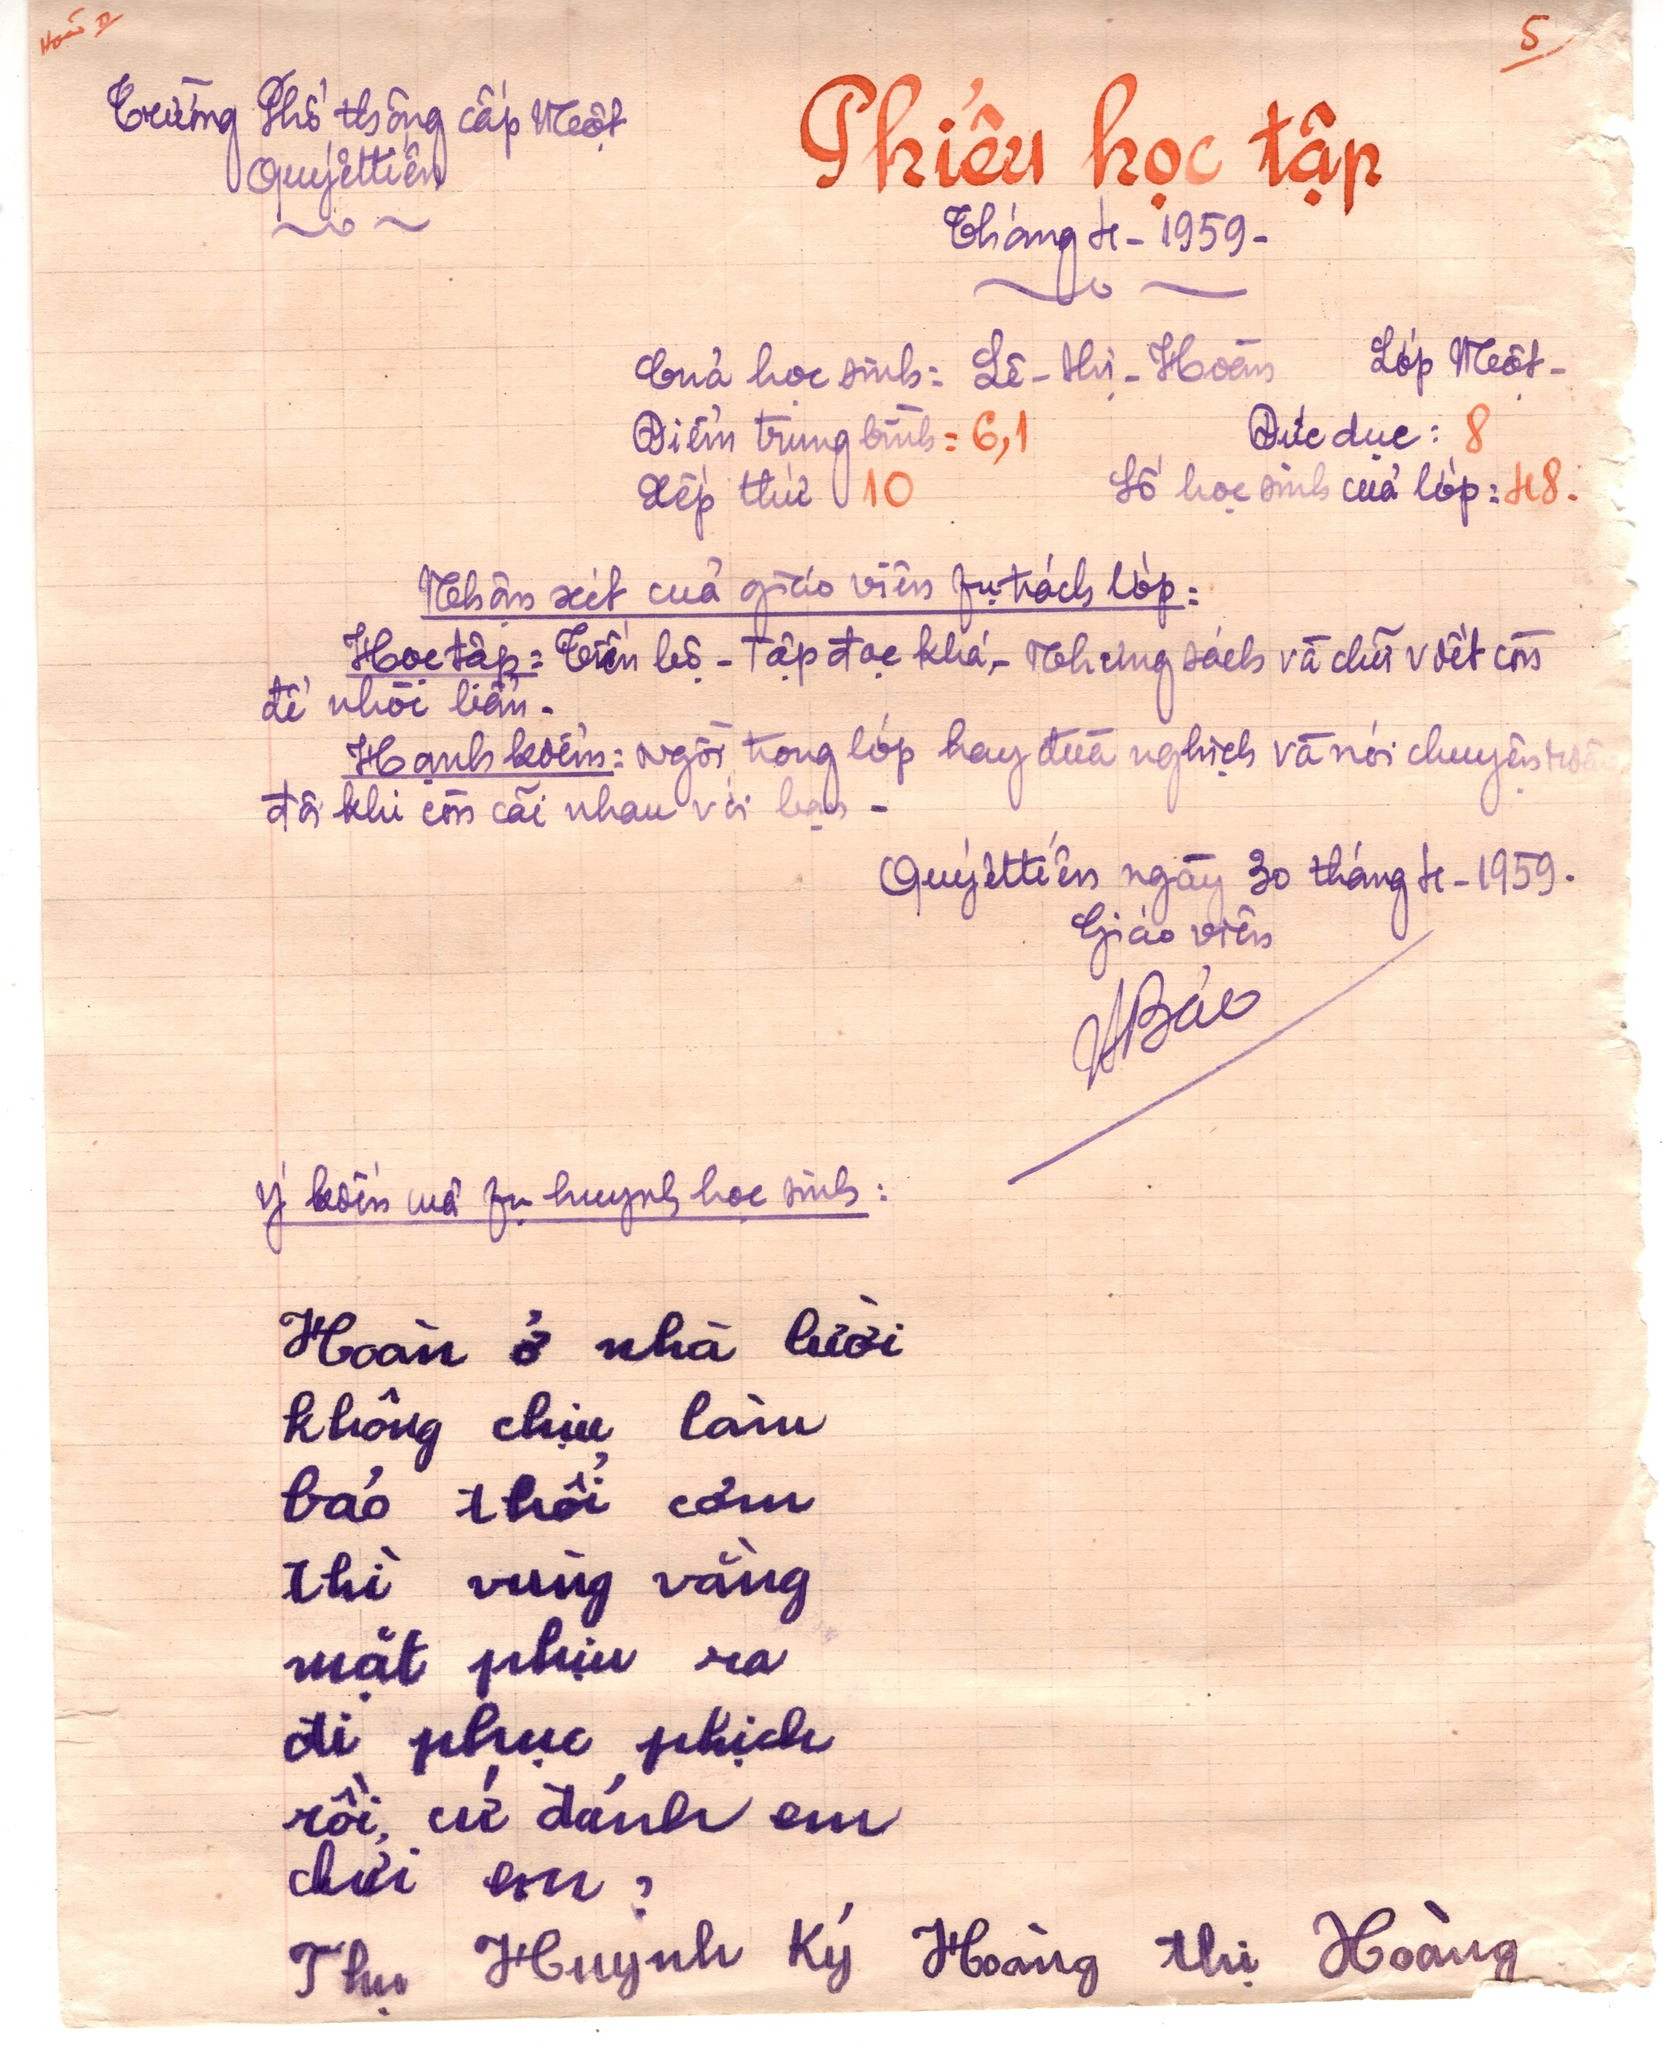 5
Trường Phổ thông cấp Một
Quyết tiến
Phiếu học tập
Tháng 4 - 1959 -
Của học sinh: Lê - thị - Hoàn Lớp Một -
Điểm trung bình = 6,1 Đức dục: 8
Xếp thứ 10 Số học sinh của lớp: 48.
Nhận xét của giáo viên fụ trách lớp:
Học tập: Tiến bộ - Tập đọc khá, - Nhưng sách và chữ viết còn
để nhòi bẩn -
Hạnh kiểm: Ngồi trong lớp hay đùa nghịch và nói chuyện
đôi khi còn cãi nhau với bạn -
Quyết tiến ngày 30 tháng 4 - 1959.
Giáo viên
Bảo
Ý kiến của fụ huynh học sinh:
Hoàn ở nhà lười
không chịu làm
bảo thổi cơm
thì vùng vằng
mặt phịu ra
đi phục phịch
rồi, cứ đánh em
chửi em ?
Thụ Huynh Ký Hoàng thị Hoàng